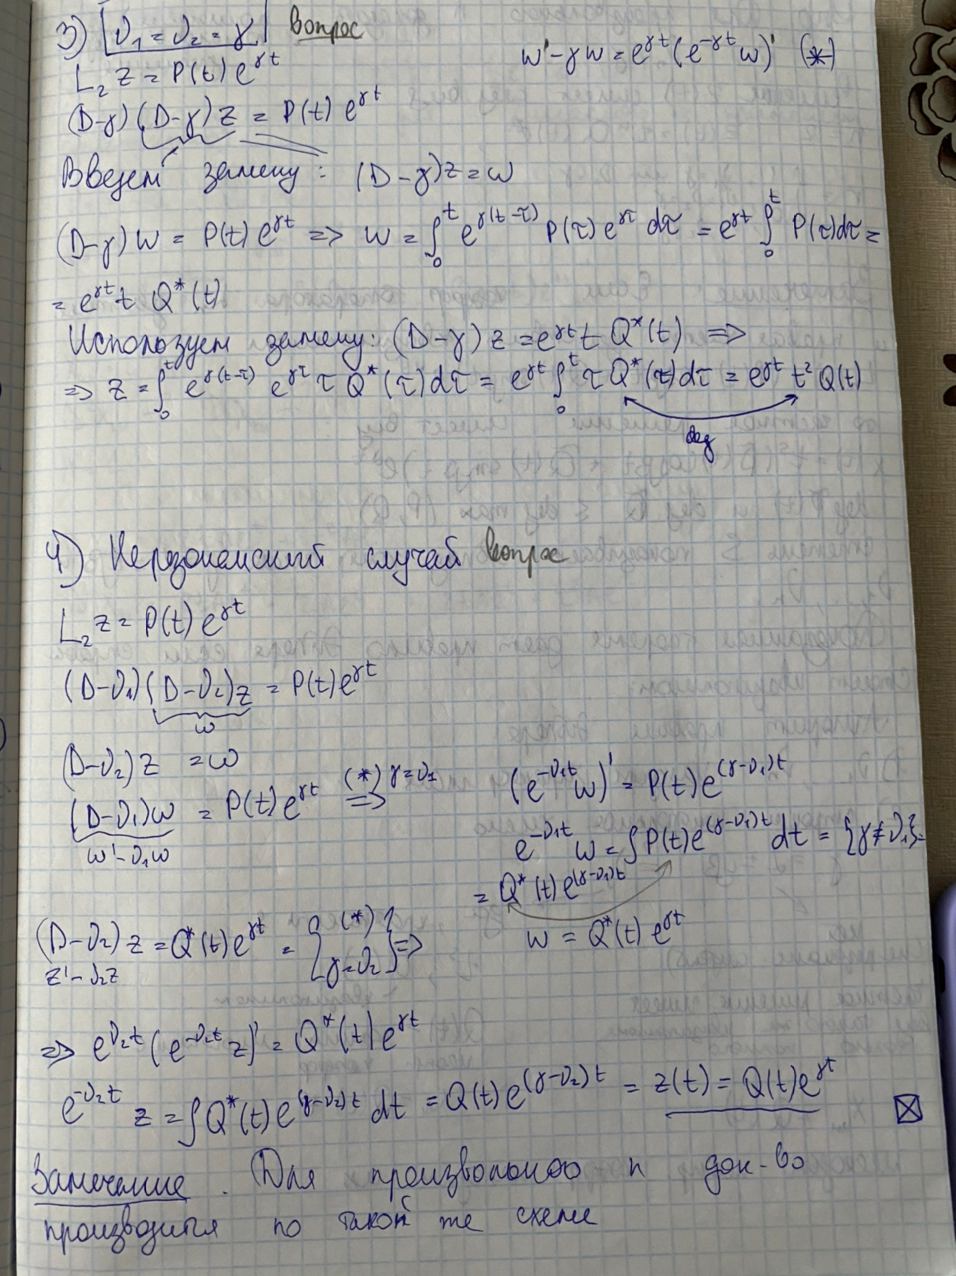 3) [ν₁ = ν₂ = γ] вопрос
w' - γw = e^{γt}(e^{-γt}w)' (*)
L₂ z = P(t) e^{γt}
(D-γ)(D-γ)z = P(t) e^{γt}
Введем замену: (D-γ)z = w
(D-γ)w = P(t) e^{γt} => w = ∫₀^t e^{γ(t-τ)} P(τ) e^{γτ} dτ = e^{γt} ∫₀^t P(τ)dτ =
= e^{γt} t Q*(t)
Используем замену: (D-γ) z = e^{γt} t Q*(t) =>
=> z = ∫₀^t e^{γ(t-τ)} e^{γτ} τ Q*(τ)dτ = e^{γt} ∫₀^t τ Q*(τ)dτ = e^{γt} t² Q(t)
deg
4) Нерезонансный случай вопрос
L₂ z = P(t) e^{γt}
(D-ν₁)(D-ν₂)z = P(t)e^{γt}
w
(D-ν₂)z = w
(D-ν₁)w = P(t)e^{γt} (*) γ=ν₁ =>
w' - ν₁w
(e^{-ν₁t} w)' = P(t)e^{(γ-ν₁)t}
e^{-ν₁t} w = ∫P(t)e^{(γ-ν₁)t} dt = {γ≠ν₁} =
= Q*(t)e^{(γ-ν₁)t}
w = Q*(t) e^{γt}
(D-ν₂) z = Q*(t)e^{γt} = {(*) γ=ν₂} =>
z' - ν₂z
=> e^{ν₂t}(e^{-ν₂t} z)' = Q*(t)e^{γt}
e^{-ν₂t} z = ∫Q*(t)e^{(γ-ν₂)t} dt = Q(t)e^{(γ-ν₂)t} = z(t) = Q(t)e^{γt} ⊠
Замечание. Для произвольного n док-во
производится по такой же схеме